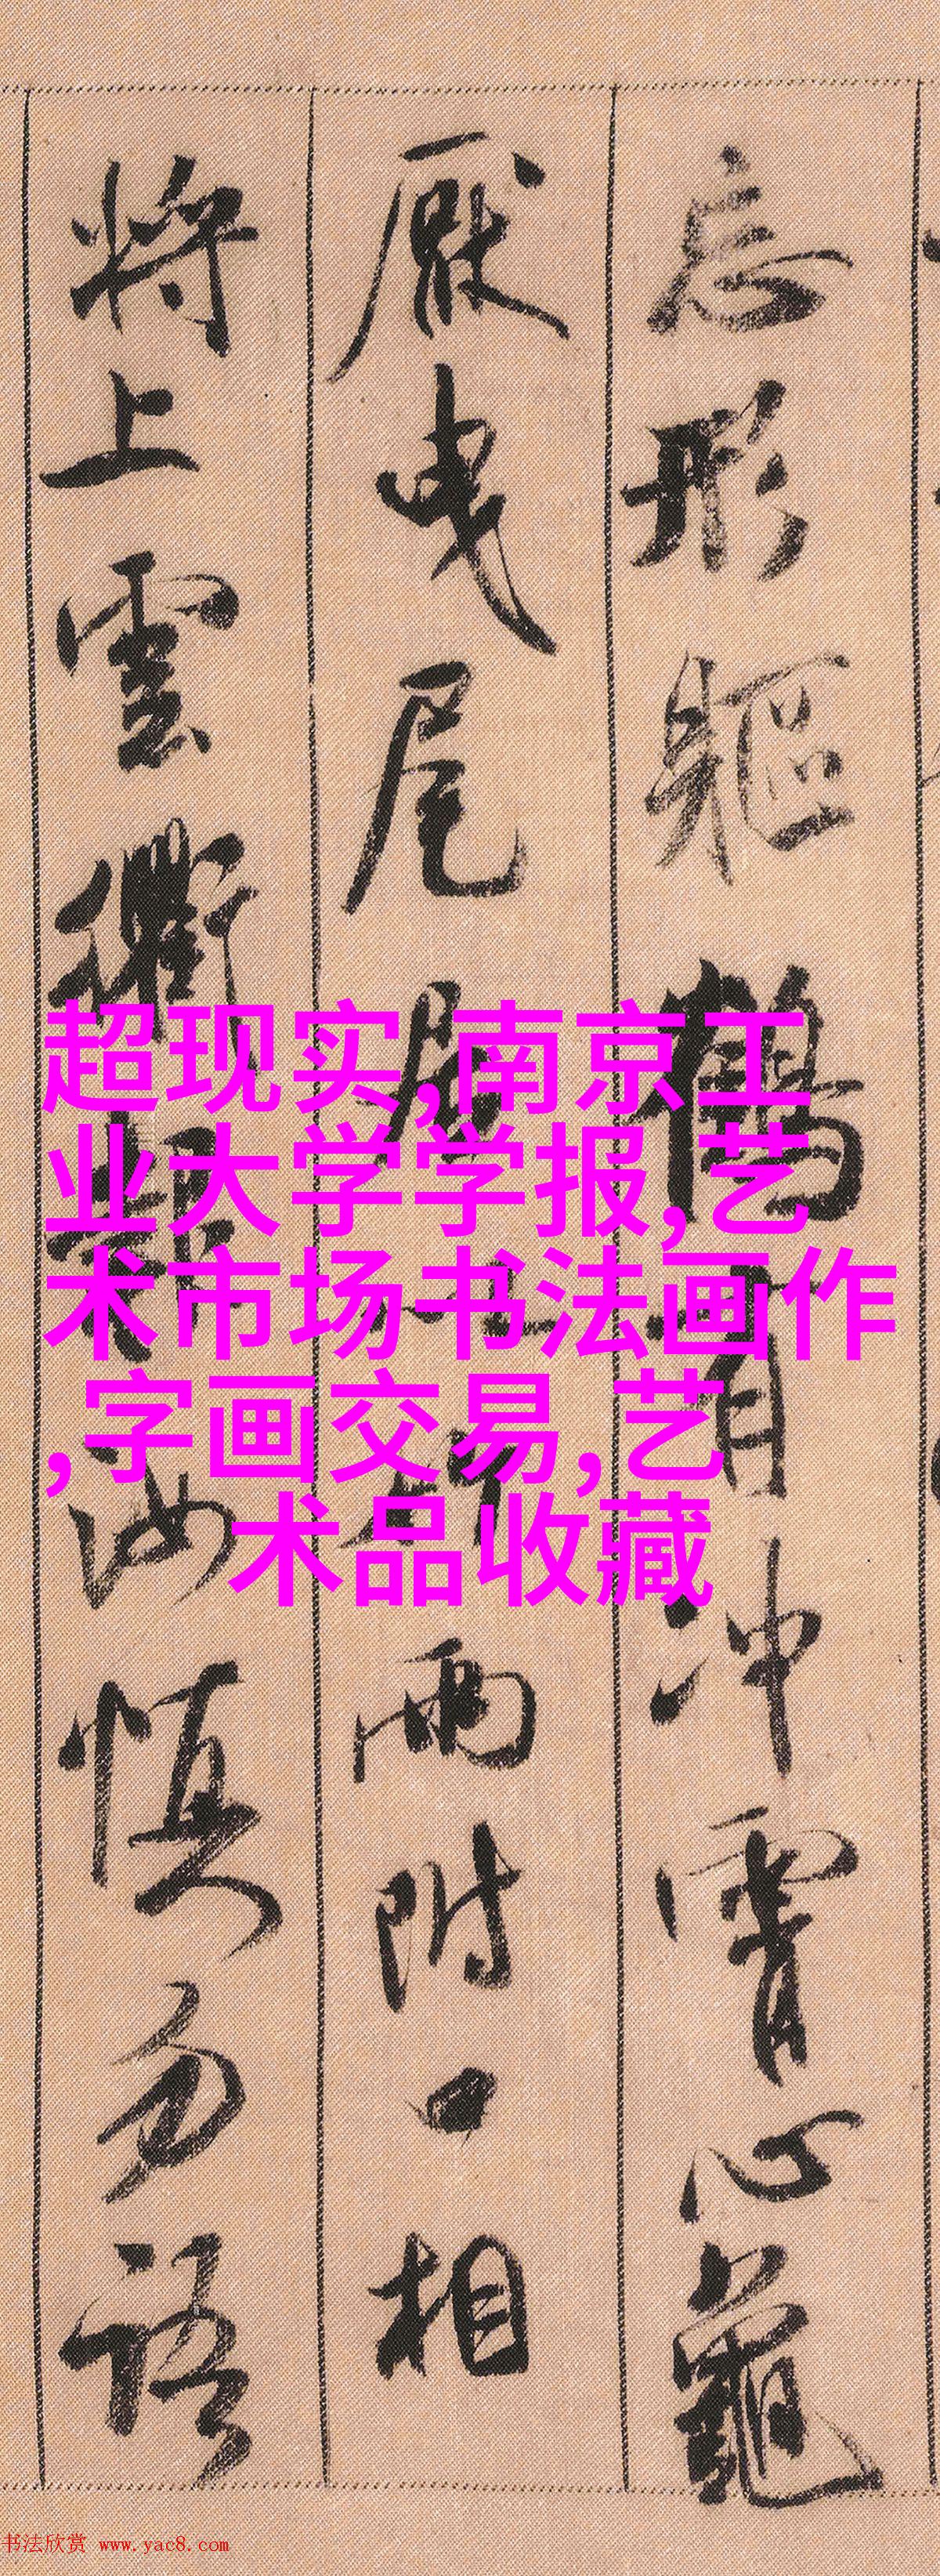 忘形軀鶴有冲霄心龜
厭曳尾居兩附口相
將上雲衢報汝慎勿語
超现实,南京工
业大学学报,艺
术市场书法画作
,字画交易,艺
术品收藏
书法欣赏 www.yac8.com